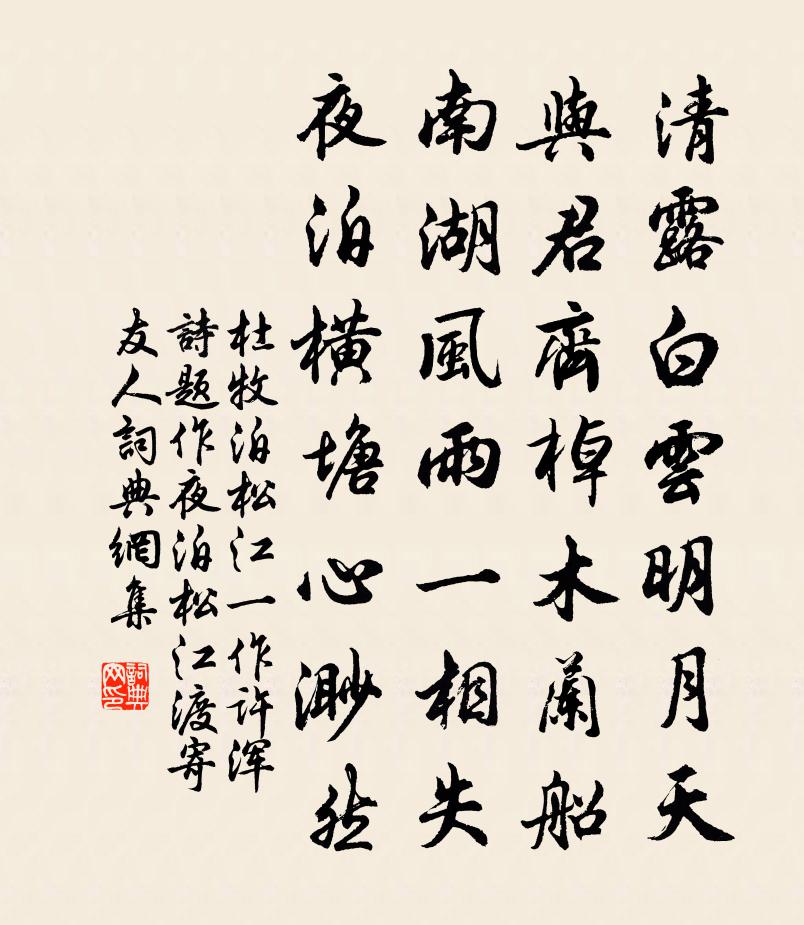 清露白雲明月天
與君齊棹木蘭船
南湖風雨一相失
夜泊橫塘心渺然
杜牧泊松江一作許浑
詩題作夜泊松江渡寄
友人詞典網集
詞典网印